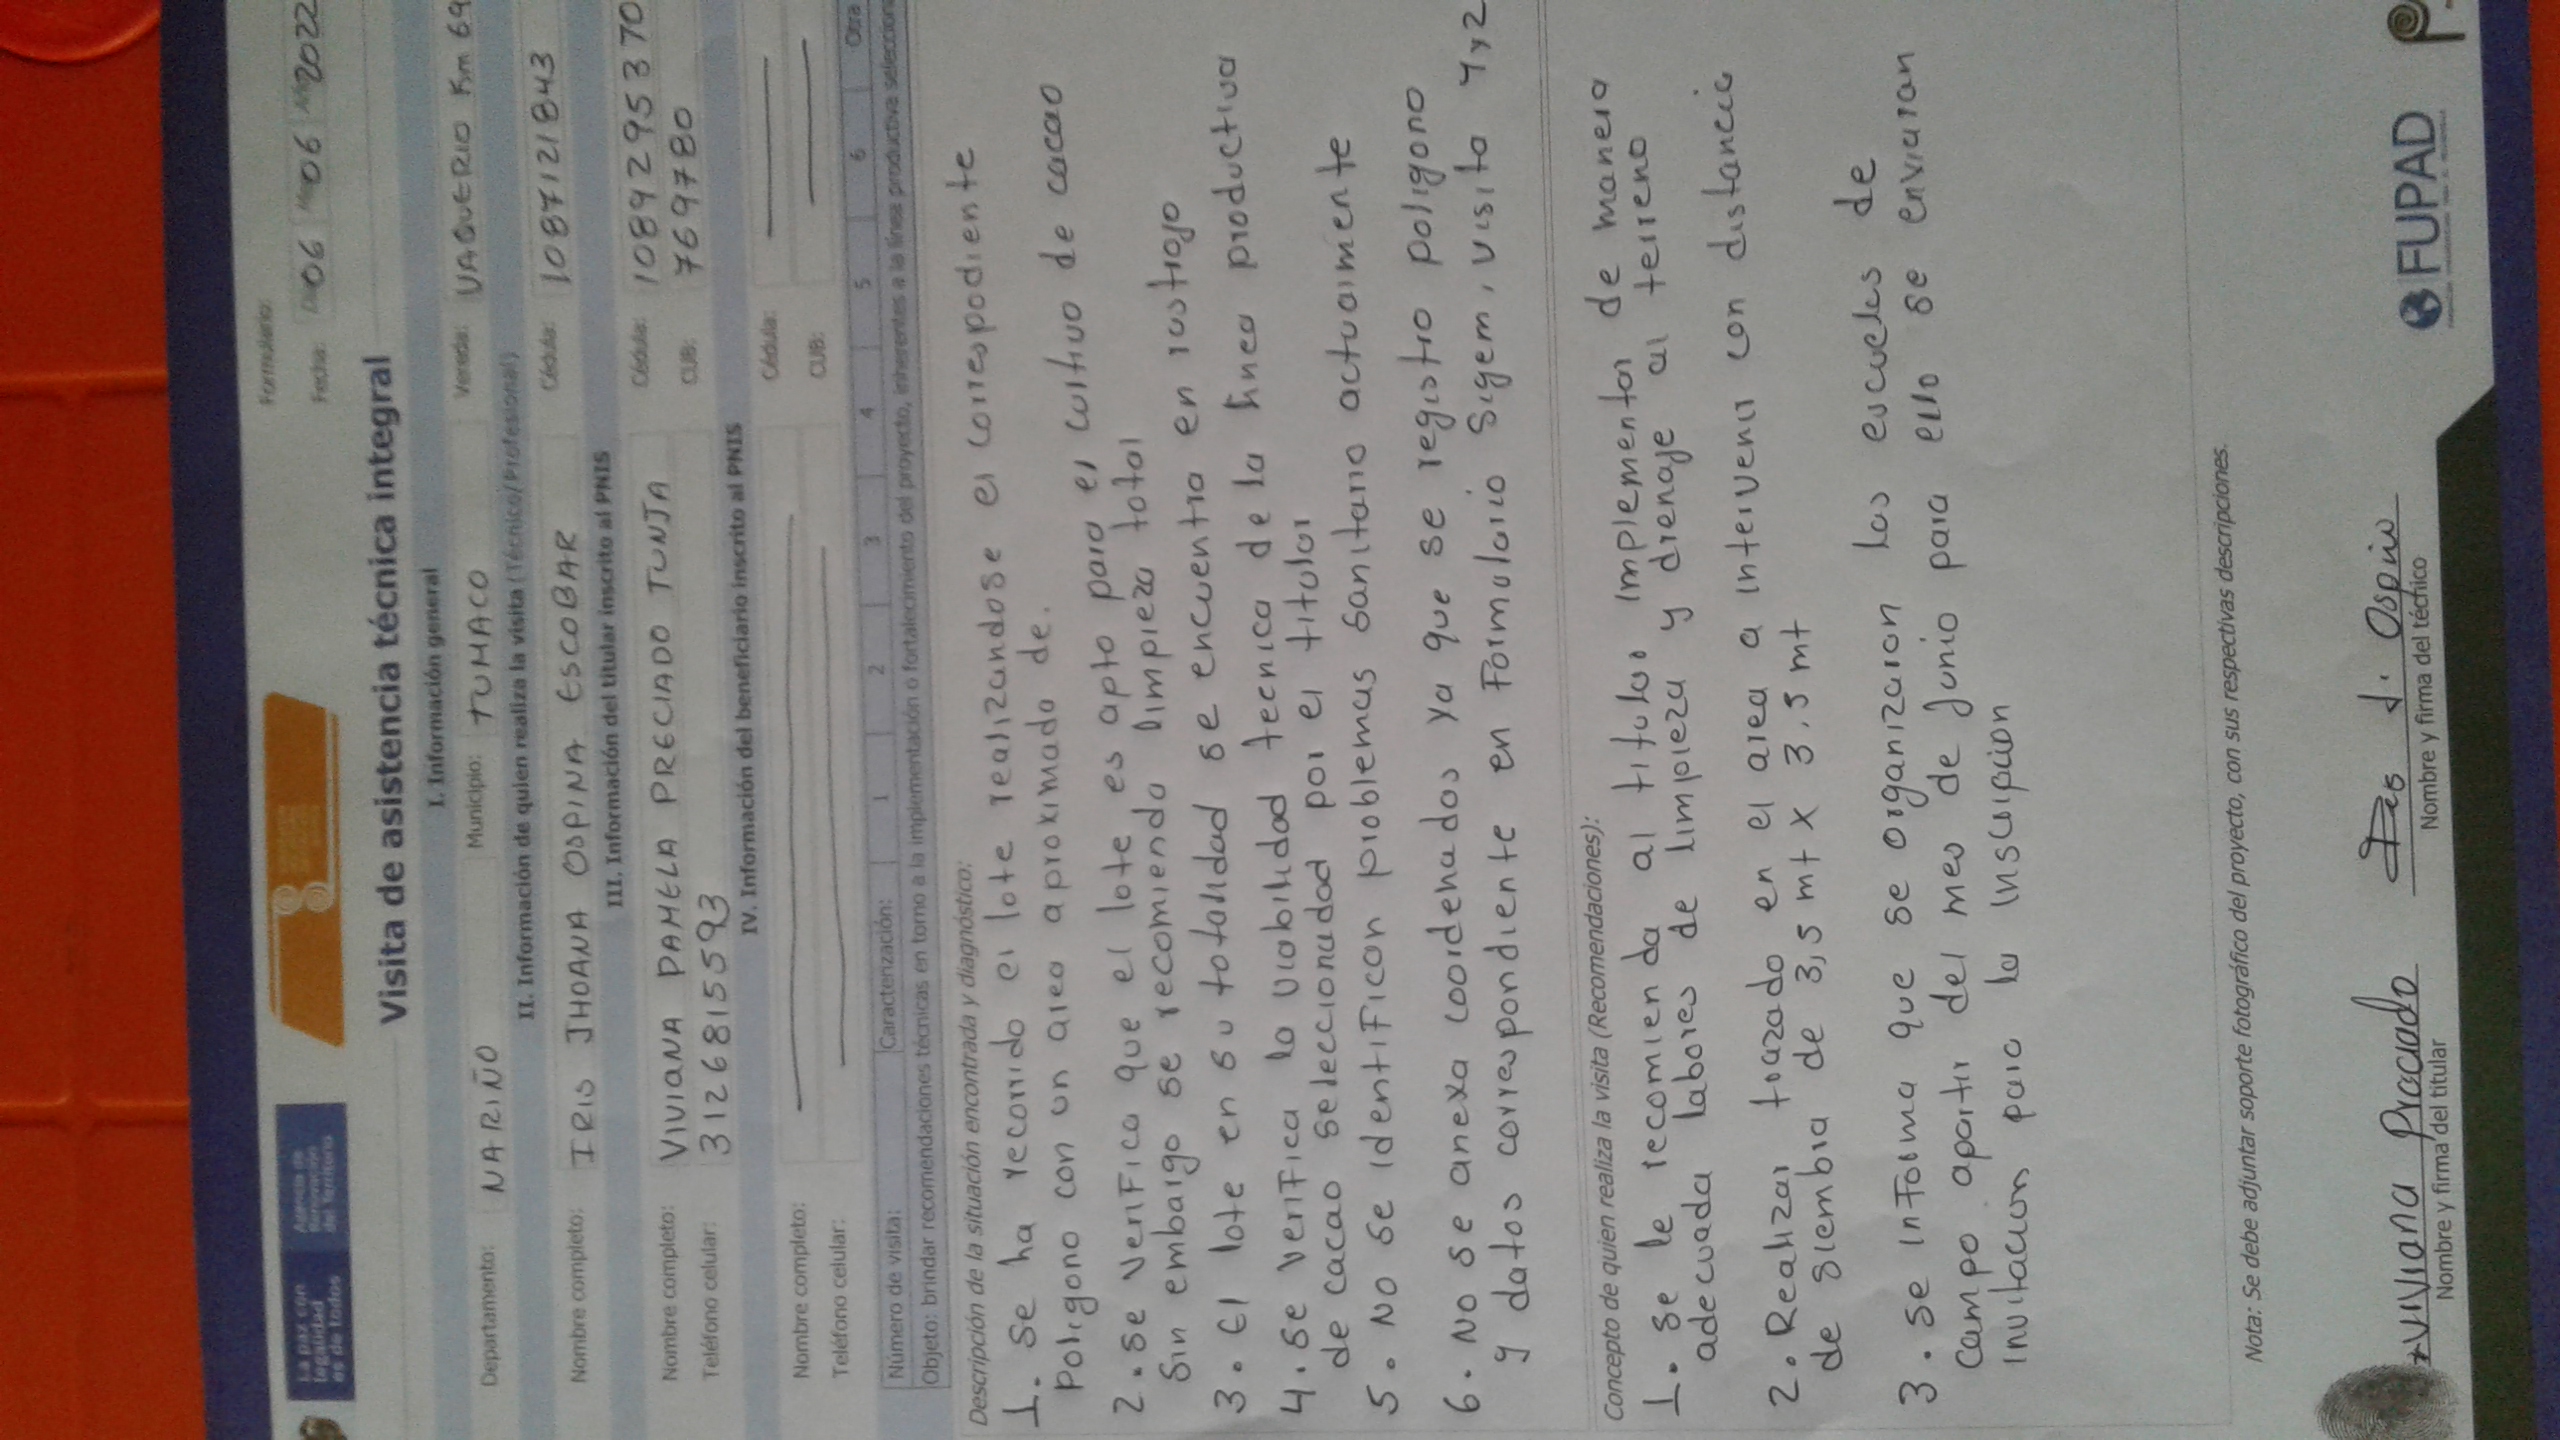 La paz con
legalidad
es de todos
Agencia de
Renovación
de Territorio
Formulario:
Fecha: Día 06 Mes 06 Año 2022
Visita de asistencia técnica integral
I. Información general
Departamento: NARIÑO Municipio: TUMACO Vereda: VAQUERIO Km 69
II. Información de quien realiza la visita (Técnico/Profesional)
Nombre completo: IRIS JHOANA OSPINA ESCOBAR Cédula: 1087121843
III. Información del titular inscrito al PNIS
Nombre completo: VIVIANA PAMELA PRECIADO TUNJA Cédula: 1089295370
Teléfono celular: 3126815593 CUB: 769780
IV. Información del beneficiario inscrito al PNIS
Nombre completo: Cédula:
Teléfono celular: CUB:
Número de visita: Caracterización: 1 2 3 4 5 6 Otra
Objeto: brindar recomendaciones técnicas en torno a la implementación o fortalecimiento del proyecto, inherentes a la línea productiva
Descripción de la situación encontrada y diagnóstico:
1. Se ha recorrido el lote realizandose el correspodiente
Poligono con un area aproximado de.
2. se veriFica que el lote es apto para el cultivo de cacao
Sin embargo se recomienda limpieza total
3. El lote en su totalidad se encuentra en rastrojo
4. se verifica la viabilidad tecnica de la linea productiva
de cacao seleccionudad por el titular
5. No se identifican problemas sanitario actualmente
6. No se anexa coordenados ya que se registro poligono
y datos correspondiente en Formulario Sigem, visita 1 y 2
Concepto de quien realiza la visita (Recomendaciones):
1. se le recomienda al titular implementar de manera
adecuada labores de limpieza y drenaje al terreno
2. Realizar trazado en el area a intervenir con distancia
de siembra de 3,5 mt x 3,5 mt
3. se informa que se organizaron las escuelas de
campo apartir del mes de junio para ello se enviaran
invitacion para la inscripcion
Nota: Se debe adjuntar soporte fotográfico del proyecto, con sus respectivas descripciones.
Viviana Preciado
Nombre y firma del titular
Iris J. Ospina
Nombre y firma del técnico
FUPAD